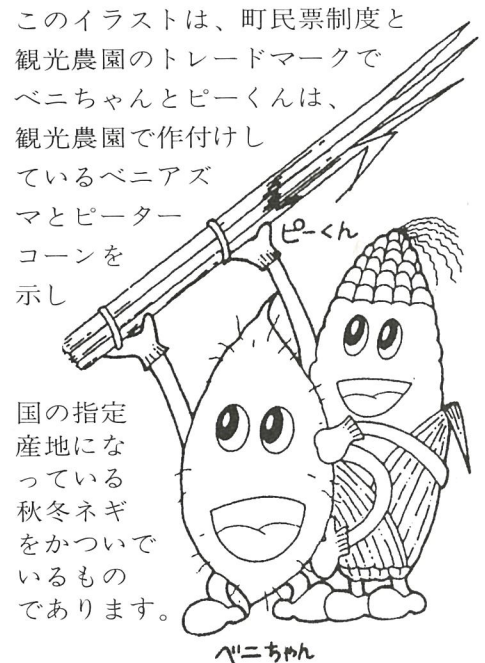 このイラストは、町民票制度と
観光農園のトレードマークで
ベニちゃんとピーくんは、
観光農園で作付けし
ているベニアズ
マとピーター
コーンを
示し
国の指定
産地にな
っている
秋冬ネギ
をかついで
いるもの
であります。
ピーくん
ベニちゃん